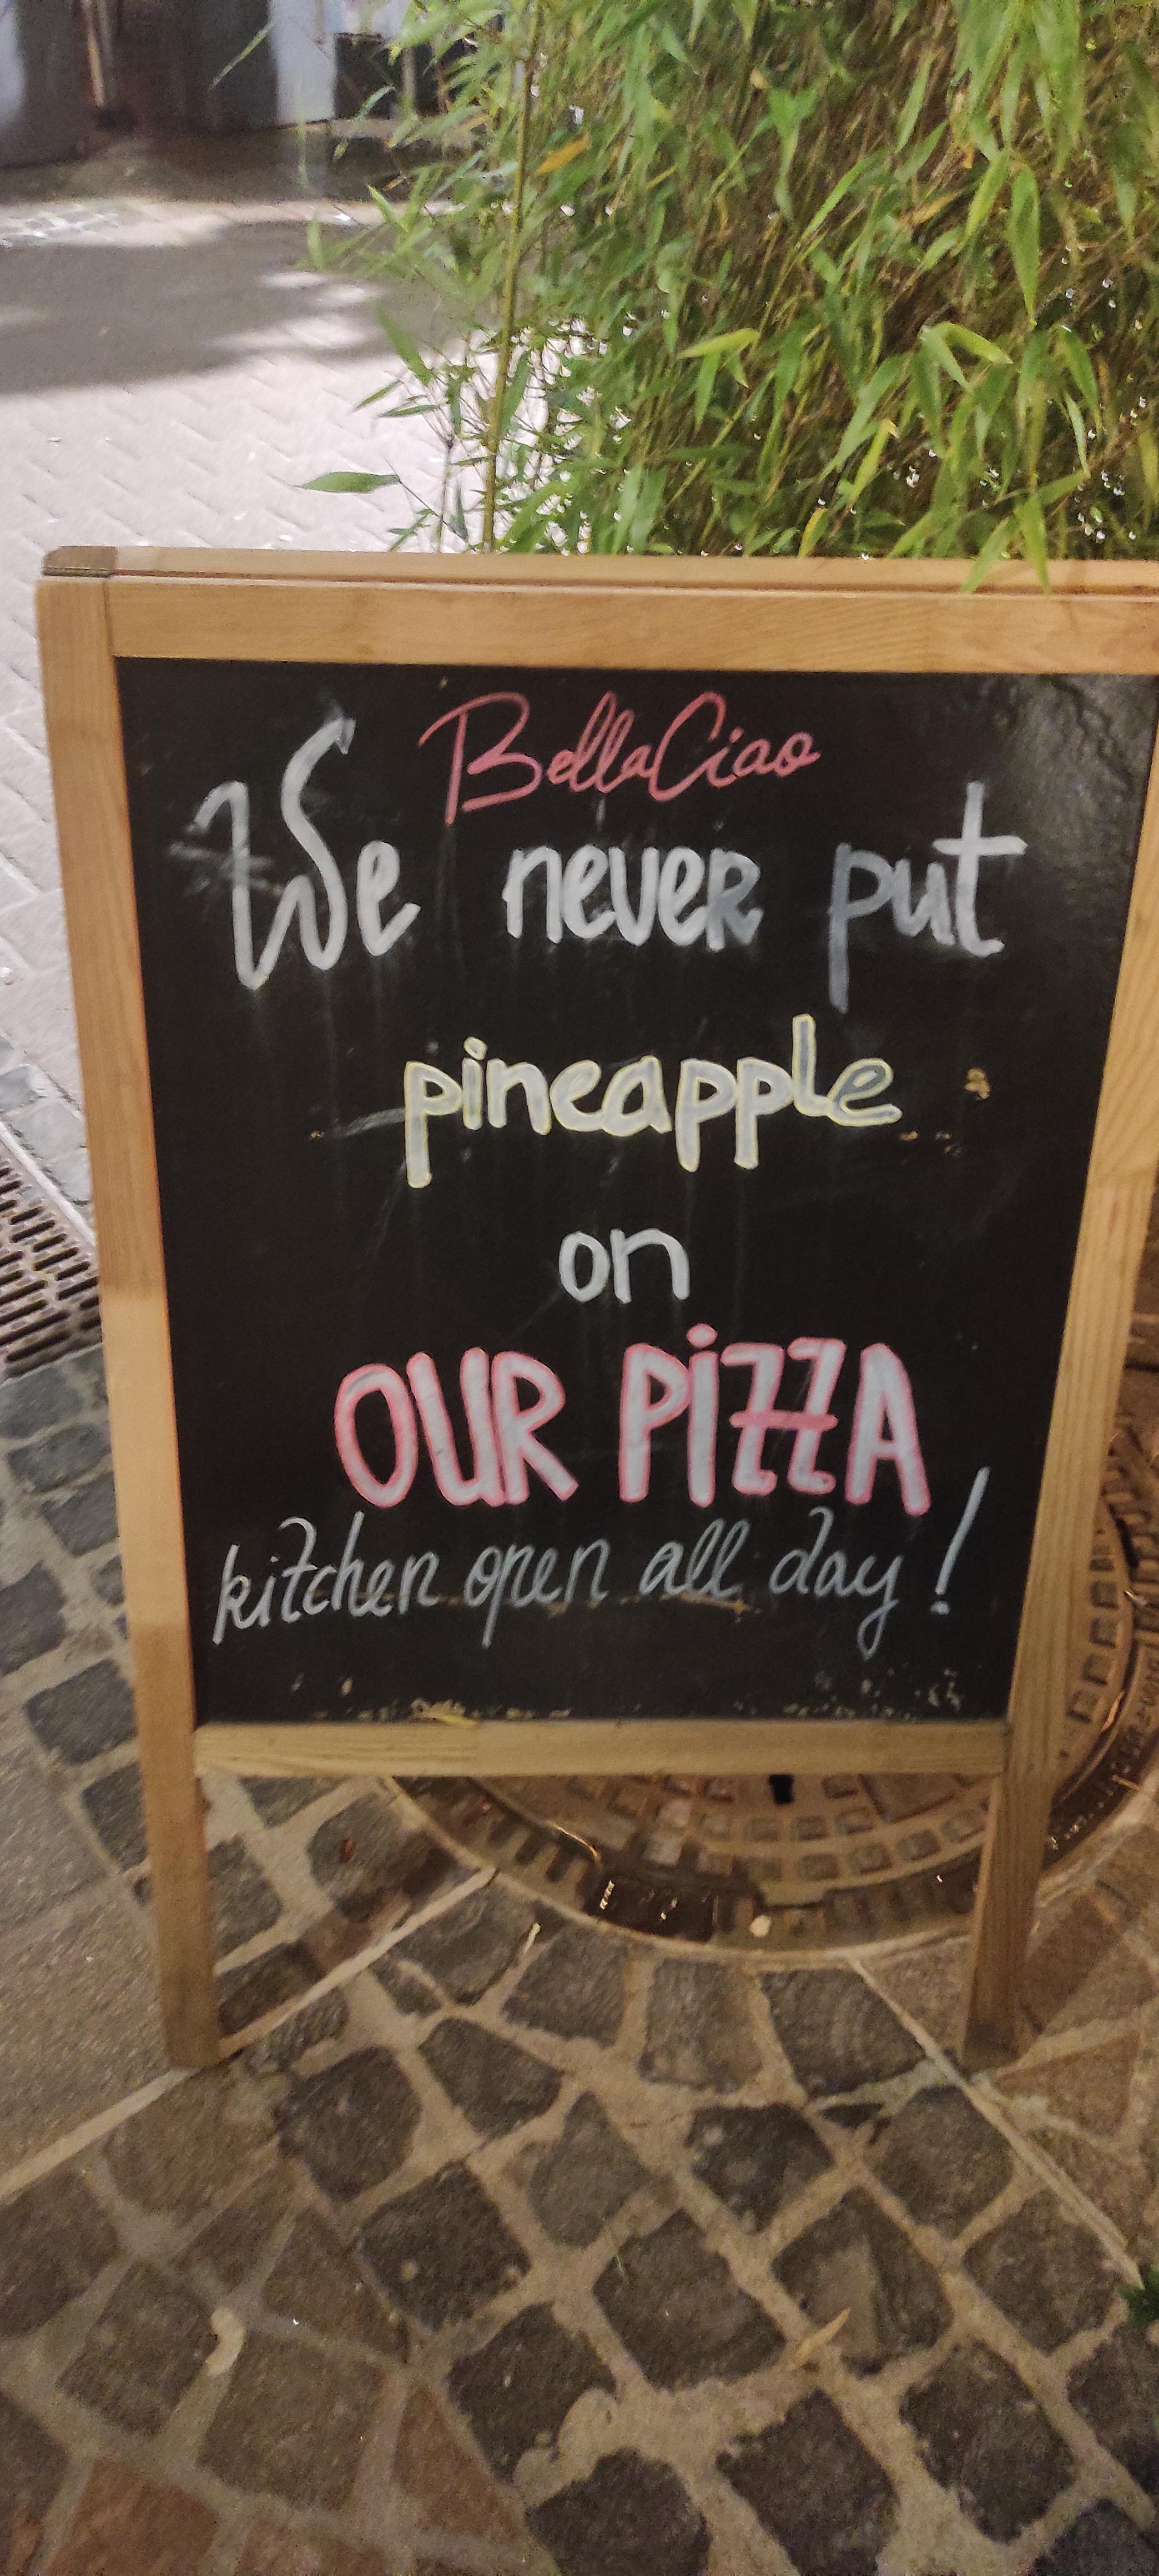 BellaCiao
We never put
pineapple
on
OUR PiZZA
kitchen open all day!